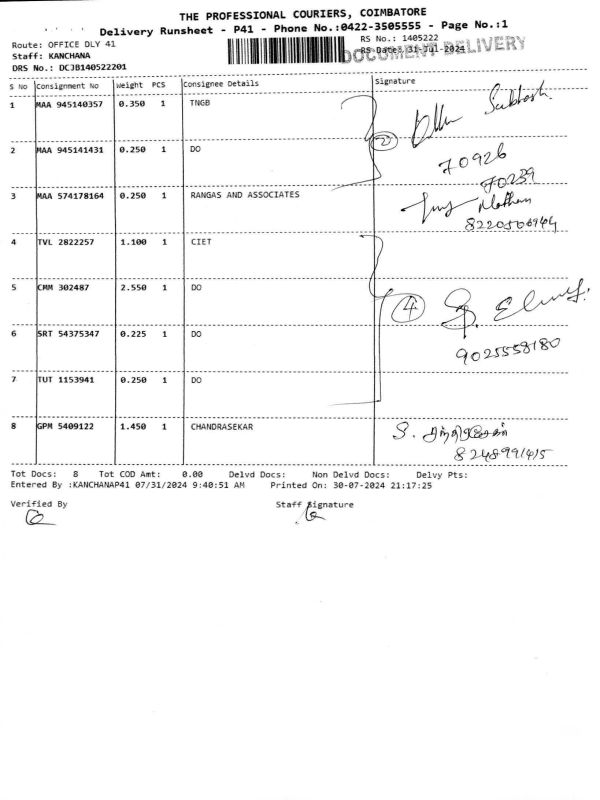 THE PROFESSIONAL COURIERS, COIMBATORE
Delivery Runsheet - P41 - Phone No.:0422-3505555 - Page No.:1
Route: OFFICE DLY 41
RS No.: 1405222
DOCUMENT DELIVERY
Staff: KANCHANA
RS Date: 31-Jul-2024
DRS No.: DCJB140522201
S No Consignment No Weight PCS Consignee Details Signature
1 MAA 945140357 0.350 1 TNGB
Subhash.
2 MAA 945141431 0.250 1 DO
2
70926
70239
3 MAA 574178164 0.250 1 RANGAS AND ASSOCIATES
Mathan
8220506944
4 TVL 2822257 1.100 1 CIET
5 CMM 302487 2.550 1 DO
4
6 SRT 54375347 0.225 1 DO
9025558180
7 TUT 1153941 0.250 1 DO
8 GPM 5409122 1.450 1 CHANDRASEKAR
S.
8248991415
Tot Docs: 8 Tot COD Amt: 0.00 Delvd Docs: Non Delvd Docs: Delvy Pts:
Entered By :KANCHANAP41 07/31/2024 9:40:51 AM Printed On: 30-07-2024 21:17:25
Verified By Staff Signature